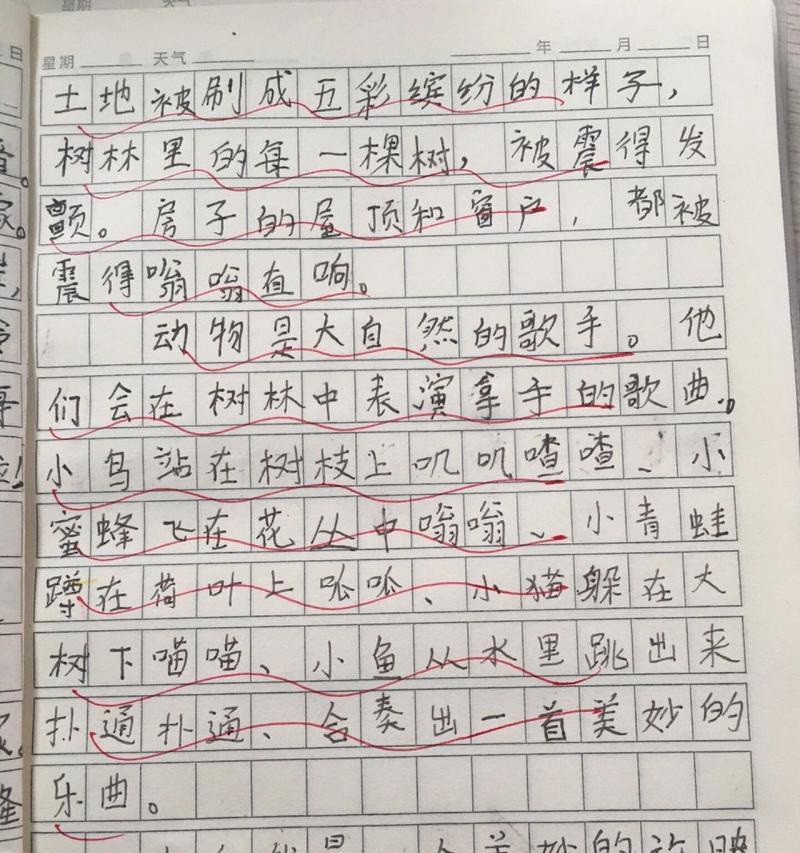 星期 天气
星期 天气 年 月 日
土地被刷成五彩缤纷的样子，
树林里的每一棵树，被震得发
颤。房子的屋顶和窗户，都被
震得嗡嗡直响。
动物是大自然的歌手。他
们会在树林中表演拿手的歌曲。
小鸟站在树枝上叽叽喳喳、小
蜜蜂飞在花丛中嗡嗡、小青蛙
蹲在荷叶上呱呱、小猫躲在大
树下喵喵、小鱼从水里跳出来
扑通扑通、合奏出一首美妙的
乐曲。
美妙的